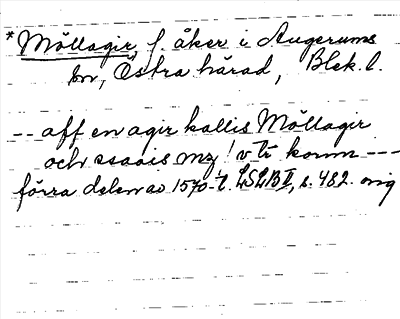 *Möllagir, f. åker i Augerums
sn, Östra härad, Blek. l.
-- aff en agir kallis Möllagir
och saais mz ! v tr korn ---
förra delen av 1570-t. LSLB II, s. 482. orig